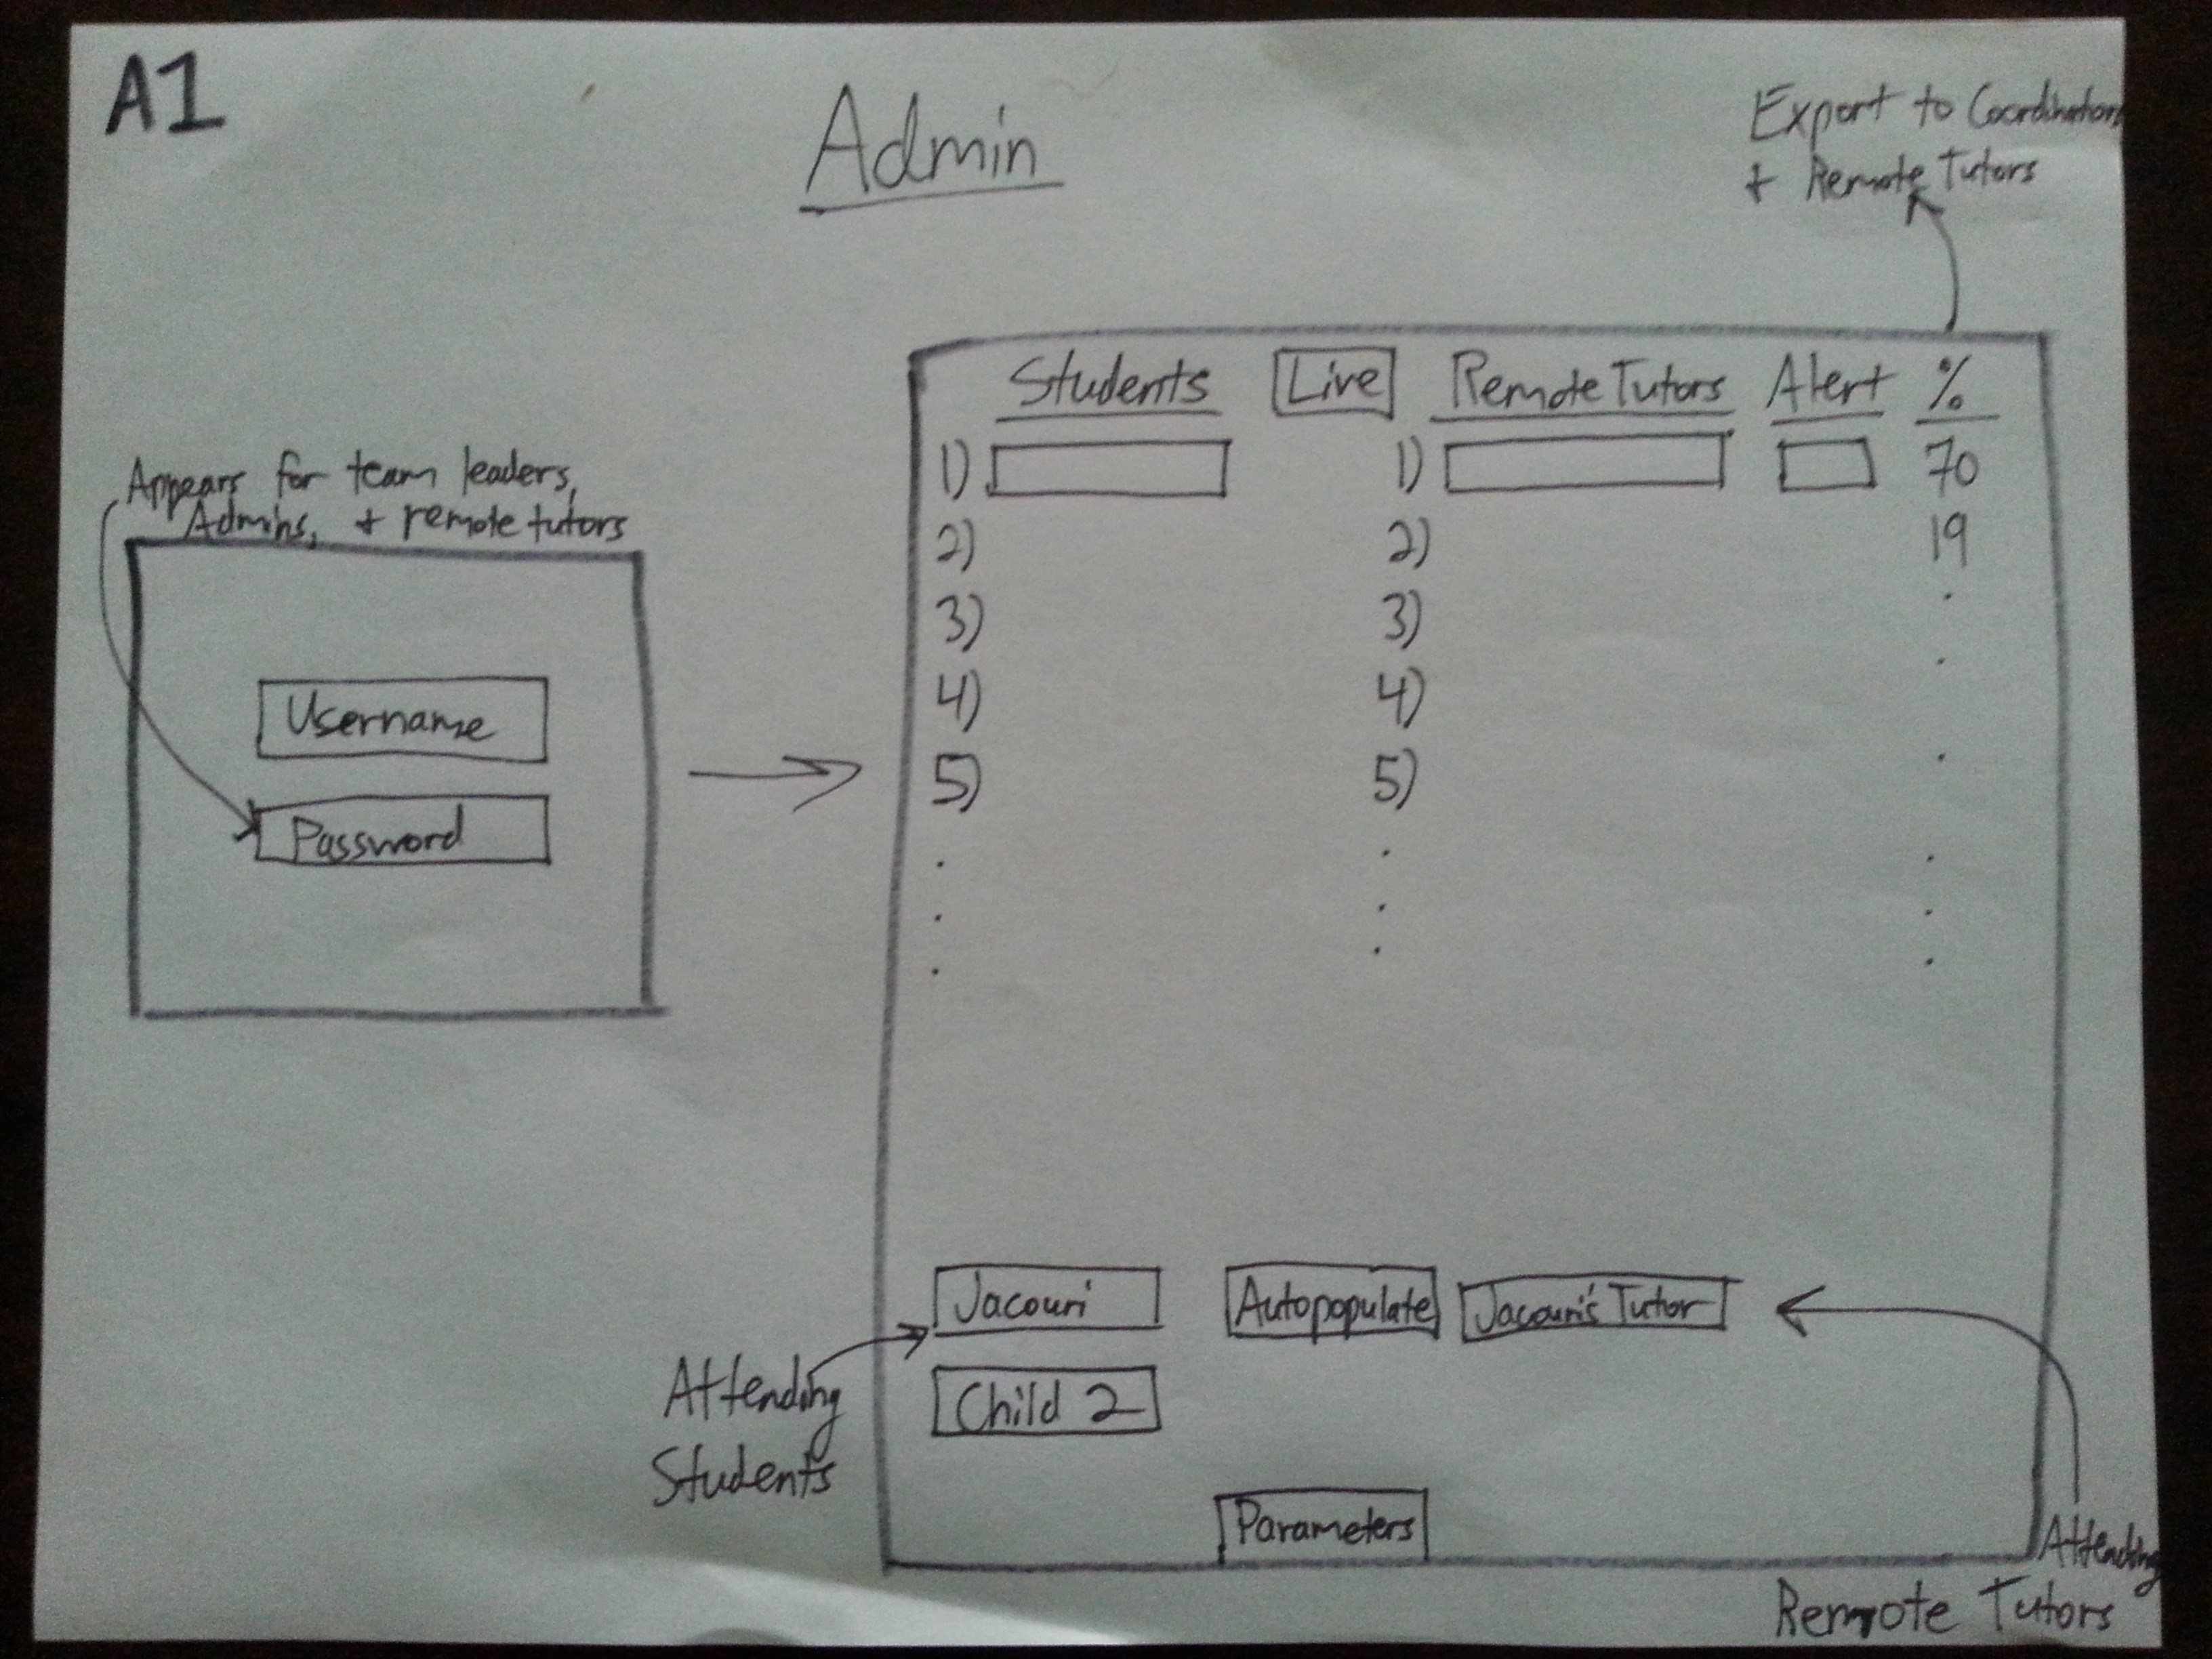 A1
Admin
Export to Coordinators
+ Remote Tutors
Appears for team leaders,
Admins, + remote tutors
Username
Password
Students Live Remote Tutors Alert %
1) 1) 70
2) 2) 19
3) 3) .
4) 4) .
5) 5) .
. . .
. . .
. . .
Jacouri Autopopulate Jacouri's Tutor
Attending
Students
Child 2
Parameters
Attending
Remote Tutors